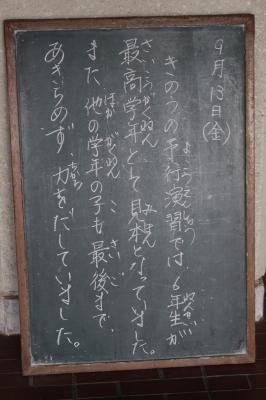 9月13日(金)
きのうの予行演習では、6年生が
最高学年として見本となっていました。
また、他の学年の子も最後まで、
あきらめず、力をだしていました。